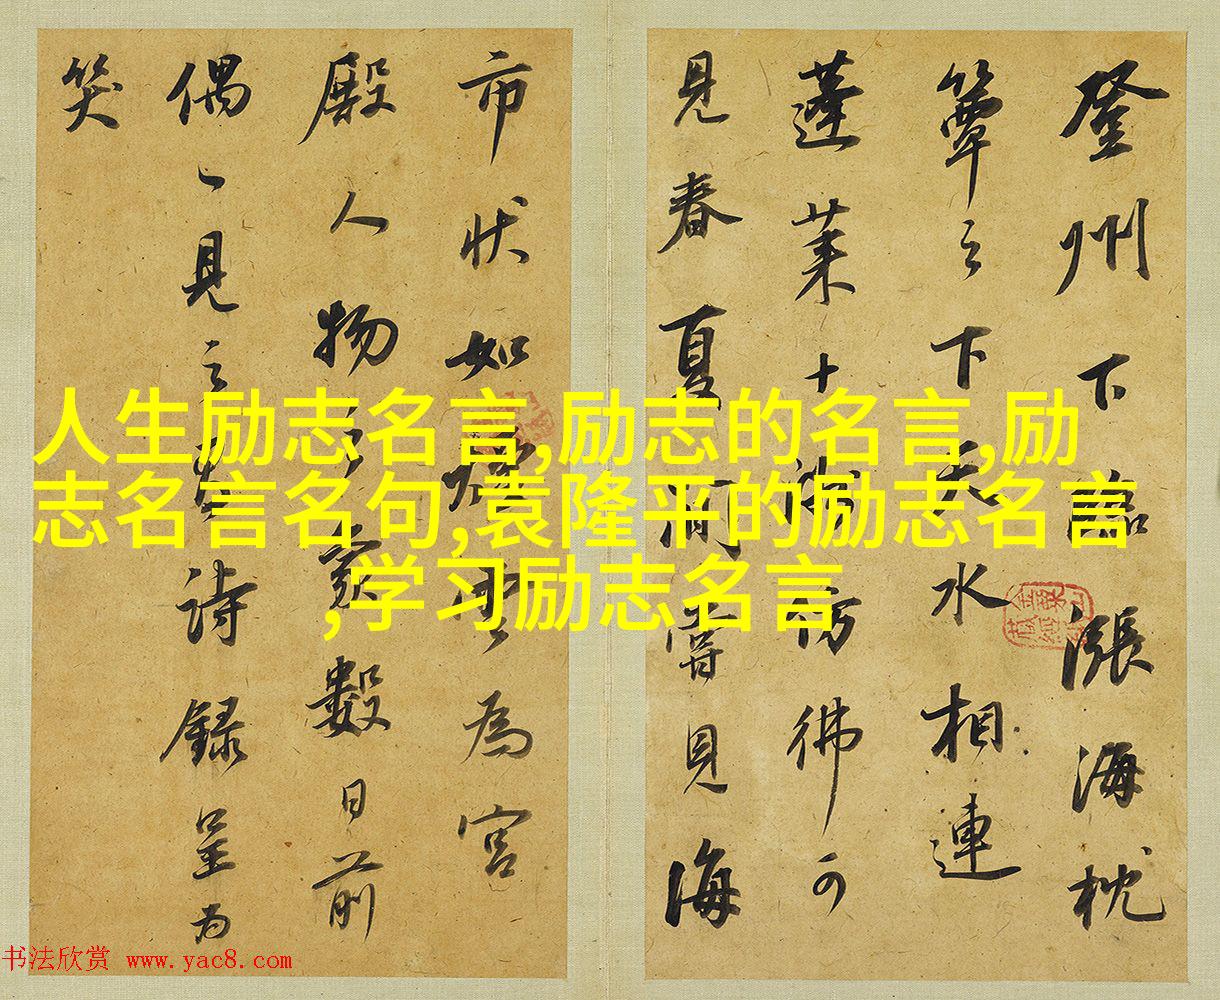 登州下臨漲海枕
簟之下天水相連
蓬莱十洲彷彿可
見春夏間嘗見海
市状如烟雲為宮
殿人物之象數日前
偶見之有詩録呈为
笑
人生励志名言,励志的名言,励
志名言名句,袁隆平的励志名言
,学习励志名言
书法欣赏 www.yac8.com